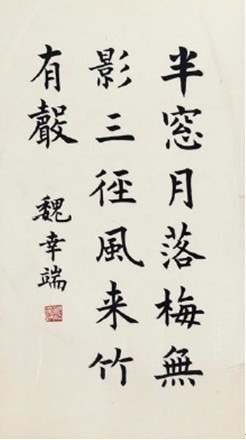 半窓月落梅無
影三徑風来竹
有聲
魏幸端